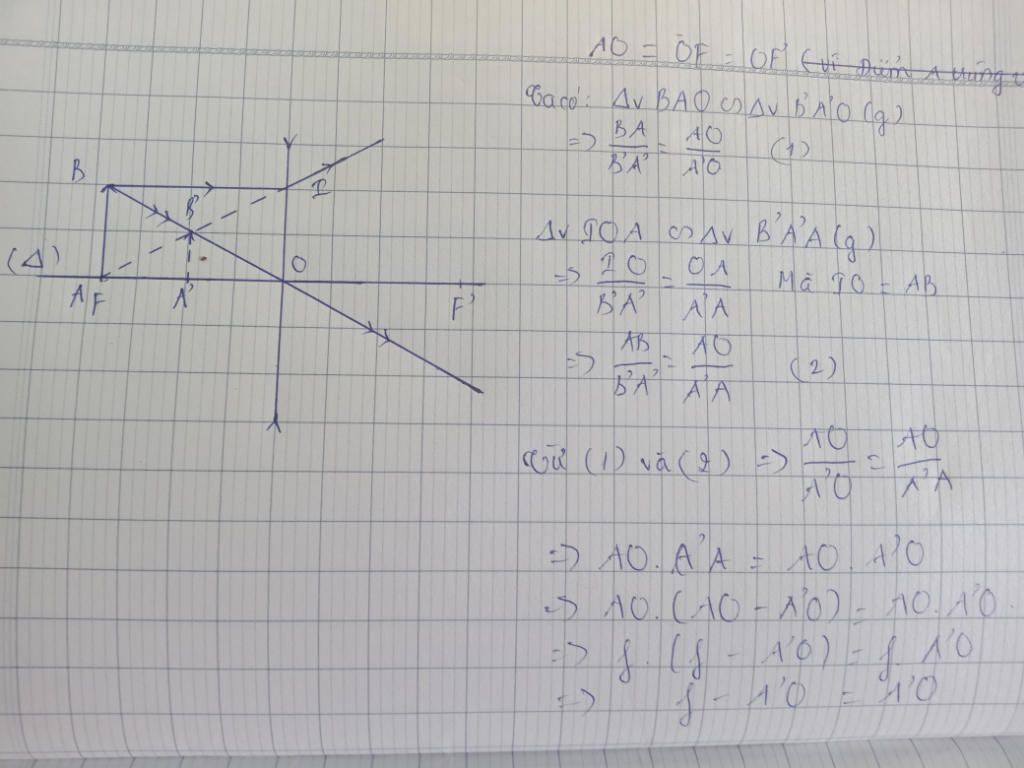 AO = OF = OF' (vì điểm A trùng
Ta có: Δv BAO ∽ Δv B'A'O (g)
=> BA/B'A' = AO/A'O (1)
Δv IOA ∽ Δv B'A'A (g)
=> IO/B'A' = OA/A'A Mà IO = AB
=> AB/B'A' = AO/A'A (2)
Từ (1) và (2) => AO/A'O = AO/A'A
=> AO. A'A = AO. A'O
=> AO. (AO - A'O) = AO. A'O
=> f. (f - A'O) = f. A'O
=> f - A'O = A'O
B
I
B'
(Δ)
O
A F
A'
F'